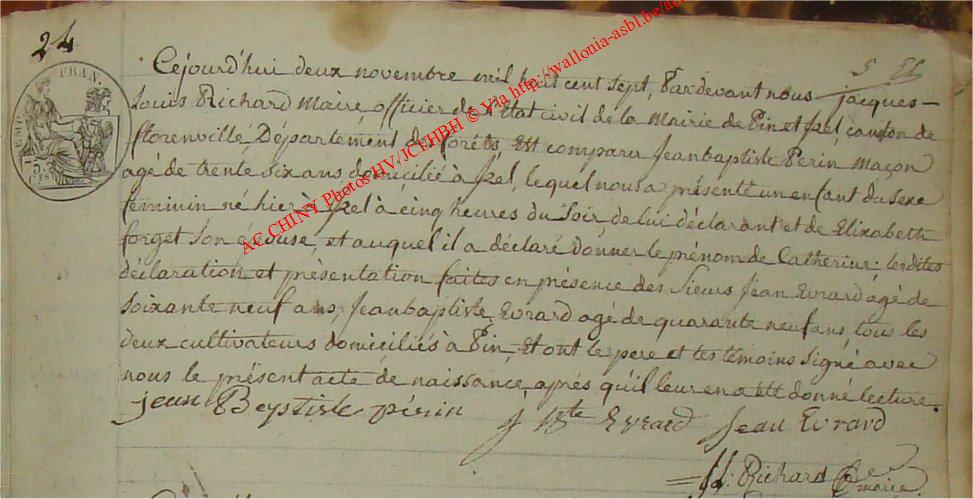 24
EMP. FRAN.
75 C.ES
5 EL
Cejourd'hui deux novembre mil huit cent sept, Pardevant nous jacques-
Louis Richard Maire, officier de l'Etat civil de la Mairie de Pin et Izel canton de
florenville, Département des forêts, Est comparu Jeanbaptiste Perin Maçon
agé de trente six ans, domicilié à Izel, lequel nous a présenté un enfant du sexe
feminin né hier à Izel à cinq heures du soir, de lui déclarant et de Elizabeth
forget son epouse, et auquel il a déclaré donner le prénom de Catherine; lesdites
déclaration et présentation faites en présence des Sieurs Jean Evrard agé de
soixante neuf ans, Jeanbaptiste Evrard agé de quarante neuf ans tous les
deux cultivateurs domiciliés à Pin, Et ont le pere et les témoins signé avec
nous le présent acte de naissance, après qu'il leur en a été donné lecture.
jean Beystiste périn j Bte Evrard Jean Evrard
J.L: Richard
maire
AC CHINY Photos HV/JCl/HBH © Via http://wallonia-asbl.be/ac